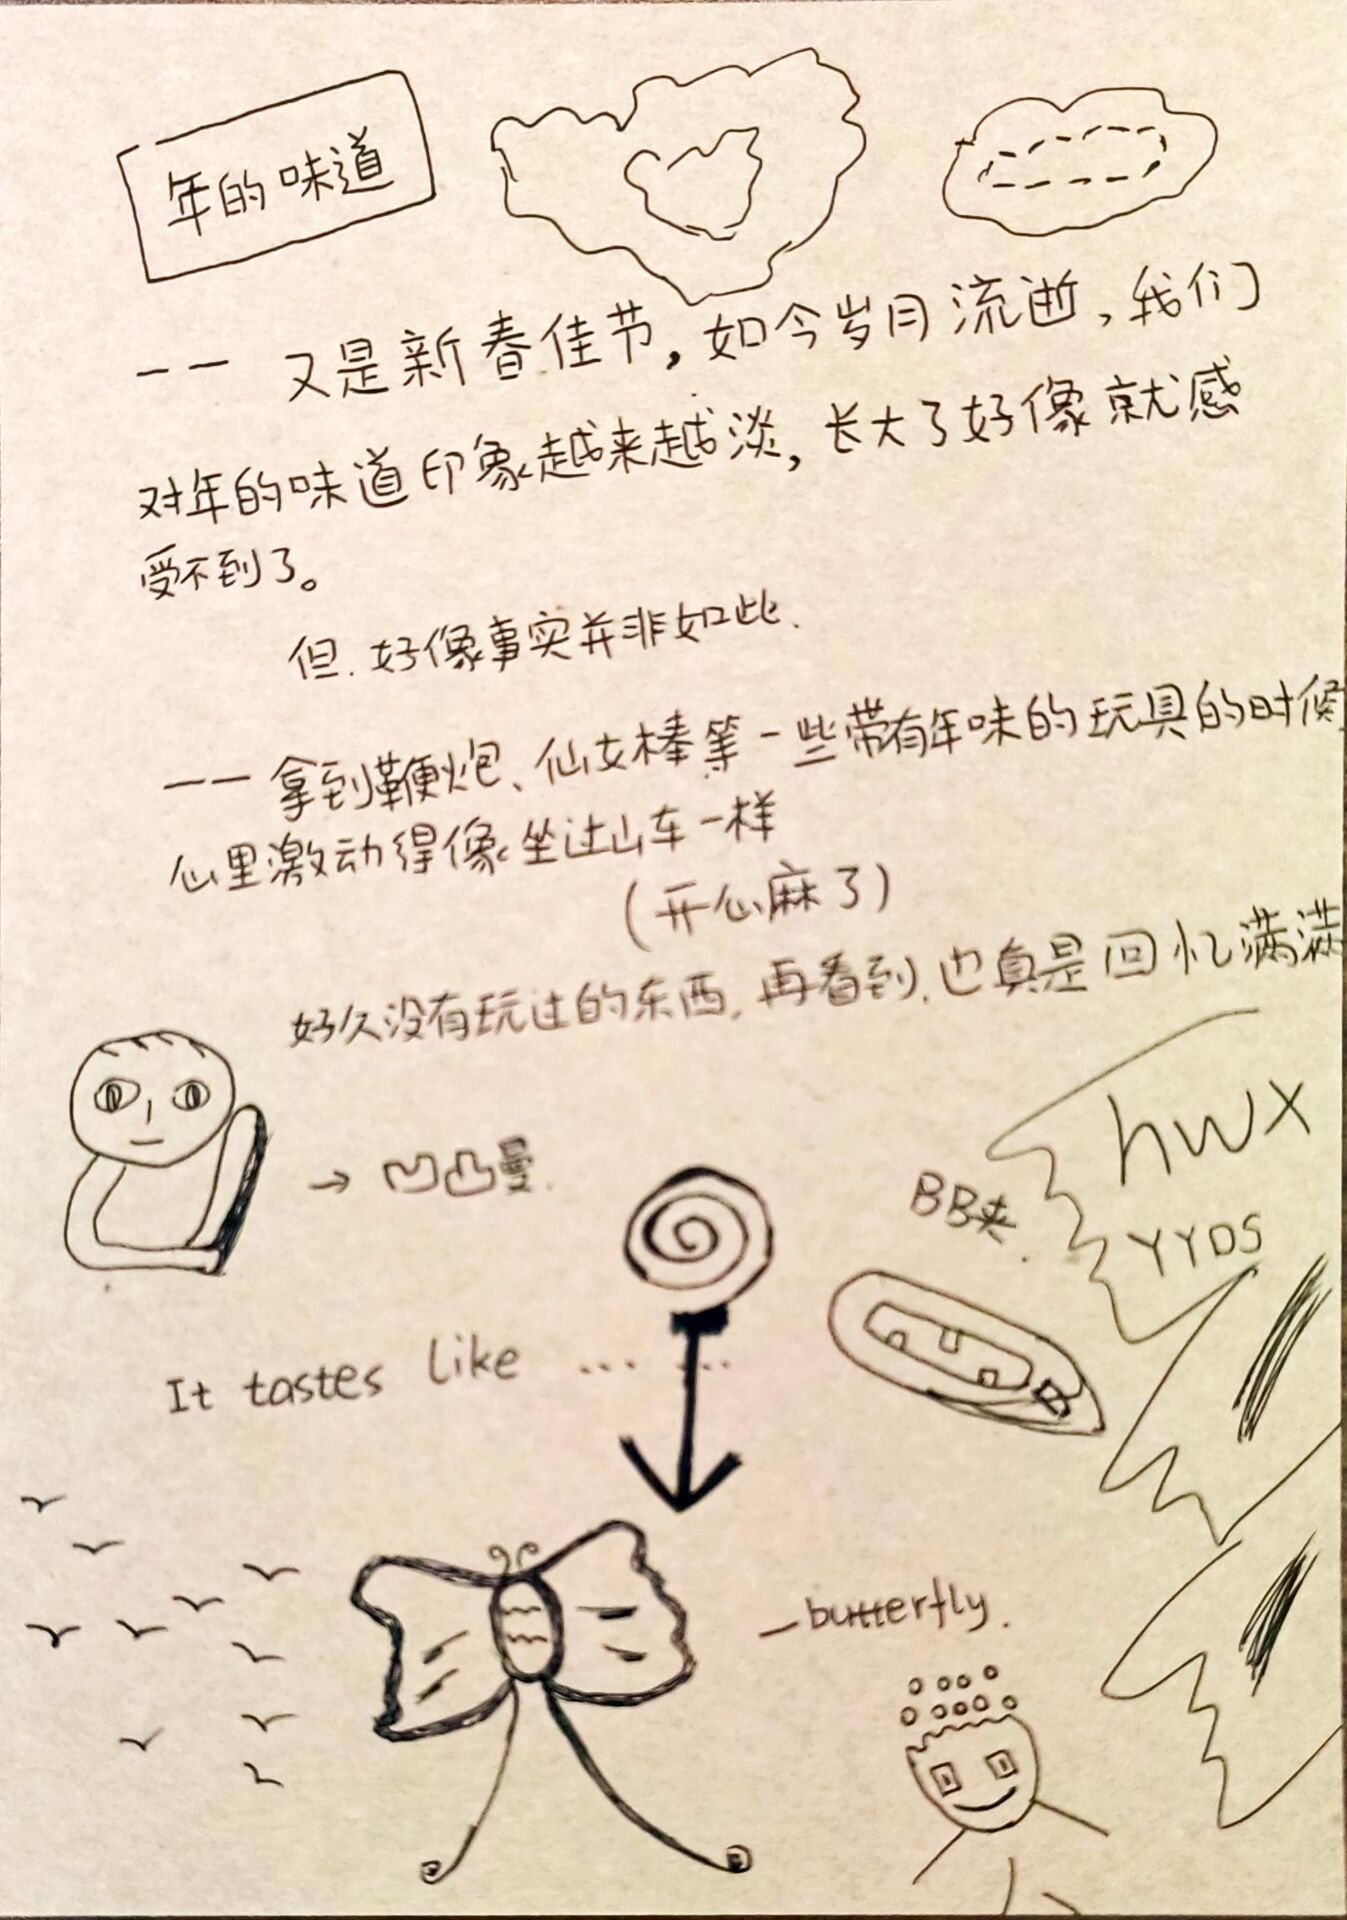 年的味道
—— 又是新春佳节，如今岁月流逝，我们
对年的味道印象越来越淡，长大了好像就感
受不到了。
但.好像事实并非如此.
—— 拿到鞭炮、仙女棒等一些带有年味的玩具的时候
心里激动得像坐过山车一样
(开心麻了)
好久没有玩过的东西，再看到，也真是回忆满满
→ 凹凸曼.
hwx
BB夹.
YYDS
It tastes like ... ...
—butterfly.